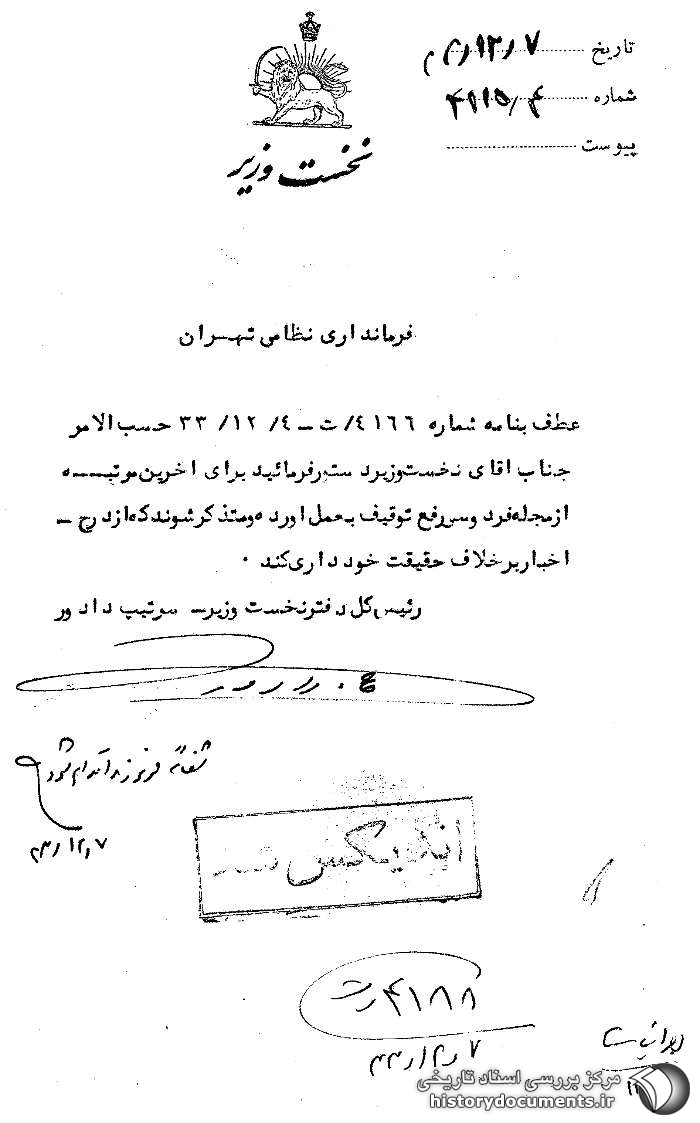 تاریخ ۷ر۱۲ر۳۳
شماره
پیوست
نخست وزیر
فرمانداری نظامی تهران
عطف بنامه شماره ٤١٦٦/ت – ٤/ ١٢/ ٣٣ حسب الامر
جناب اقای نخست وزیر دستور فرمائید برای اخرین مرتبـــــه
از مجله فردوسی رفع توقیف بعمل اورده ومتذکر شوند که از درج –
اخبار بر خلاف حقیقت خود داری کند ۰
رئیس کل دفتر نخست وزیر – سرتیپ دادور
۷ر۱۲ر۳۳
اندیکس شد
۴۱۸۸رت
۷ر۱۲ر۳۳
مرکز بررسی اسناد تاریخی
historydocuments.ir